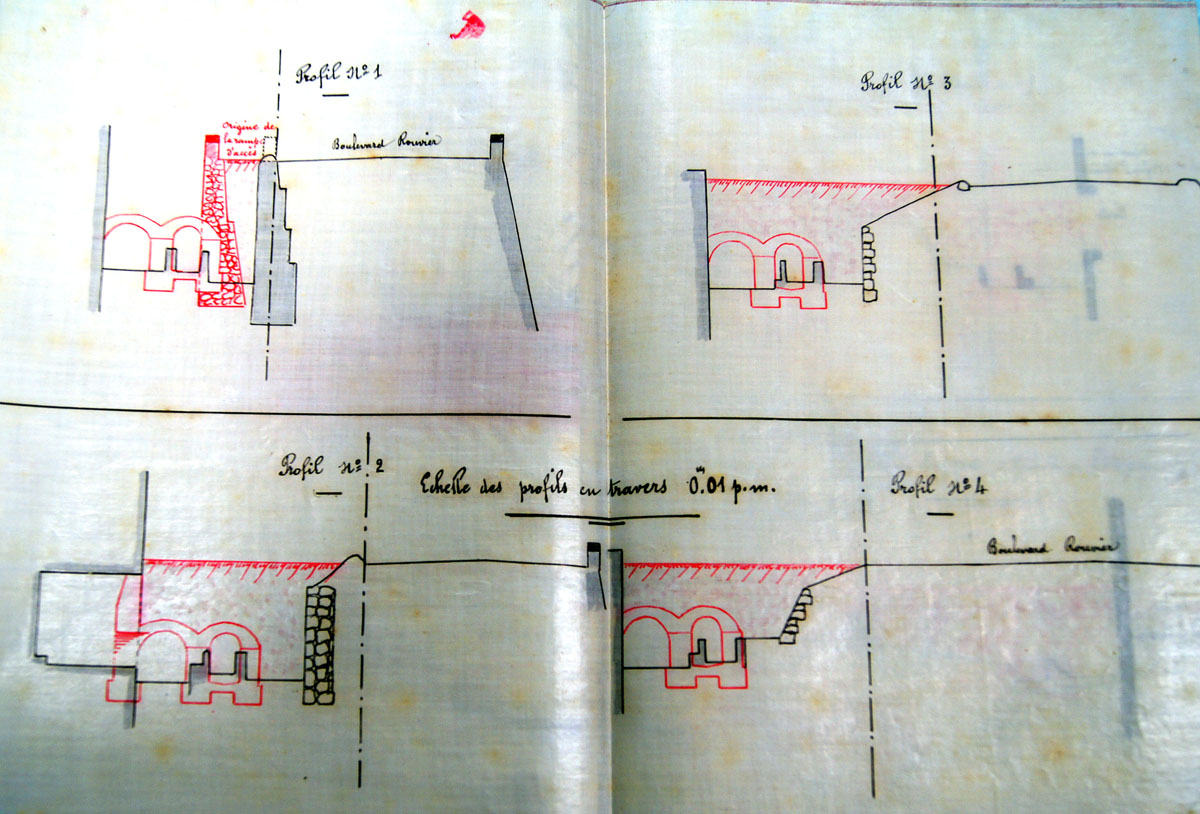 Profil Nº 1
Origine de
la rampe
d'accès
Boulevard Rouvier
Profil Nº 3
Profil Nº 2
Echelle des profils en travers 0.m01 p.m.
Profil Nº 4
Boulevard Rouvier